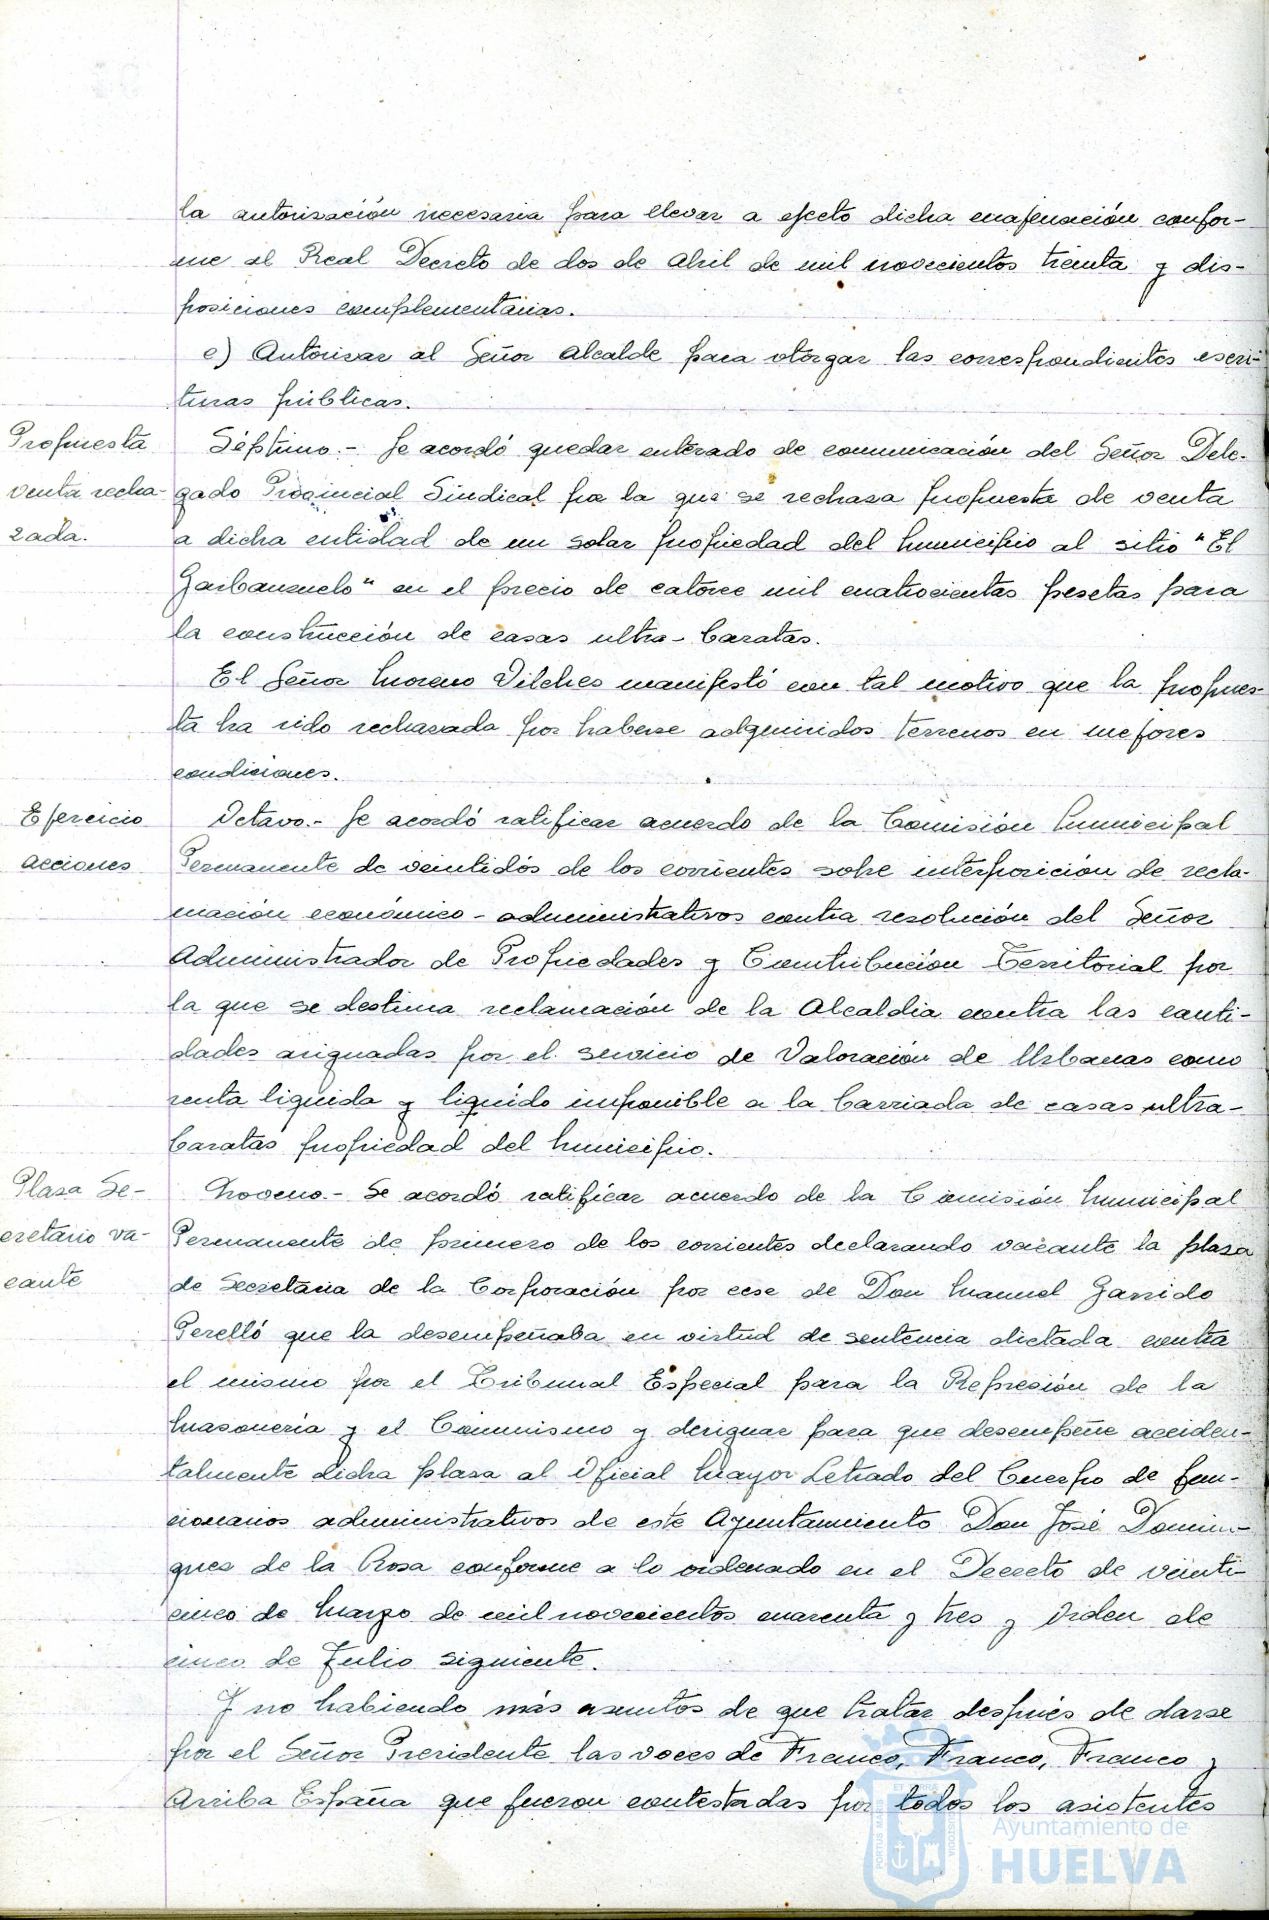 la autorización necesaria para llevar a efecto dicha enajenación confor-
me al Real Decreto de dos de Abril de mil novecientos treinta y dis-
posiciones complementarias.
e) Autorizar al Señor Alcalde para otorgar las correspondientes escri-
turas públicas.
Propuesta
venta recha-
zada.
Séptimo.- Se acordó quedar enterado de comunicación del Señor Dele-
gado Provincial Sindical por la que se rechaza propuesta de venta
a dicha entidad de un solar propiedad del Municipio al sitio "El
Garbanzuelo" en el precio de catorce mil cuatrocientas pesetas para
la construcción de casas ultra-baratas.
El Señor Moreno Vilches manifestó con tal motivo que la propues-
ta ha sido rechazada por haberse adquiridos terrenos en mejores
condiciones.
Ejercicio
acciones
Octavo.- Se acordó ratificar acuerdo de la Comisión Municipal
Permanente de veintidós de los corrientes sobre interposición de recla-
mación económico-administrativos contra resolución del Señor
Administrador de Propiedades y Contribución Territorial por
la que se destima reclamación de la Alcaldia contra las canti-
dades asignadas por el servicio de Valoración de Urbanas como
renta liquida y liquído imponible a la barriada de casas ultra-
baratas propiedad del Municipio.
Plaza Se-
cretario va-
cante
Noveno.- Se acordó ratificar acuerdo de la Comisión Municipal
Permanente de primero de los corrientes declarando vacante la plaza
de Secretaria de la Corporación por cese de Don Manuel Garrido
Perelló que la desempeñaba en virtud de sentencia dictada contra
el mismo por el Tribunal Especial para la Represión de la
Masonería y el Comunismo y designar para que desempeñe acciden-
talmente dicha plaza al Oficial Mayor Letrado del Cuerpo de fun-
cionarios administrativos de este Ayuntamiento Don José Domín-
guez de la Rosa conforme a lo ordenado en el Decreto de veinti-
cinco de Marzo de mil novecientos cuarenta y tres y Orden de
cinco de Julio siguiente.
Y no habiendo más asuntos de que tratar después de darse
por el Señor Presidente las voces de Franco, Franco, Franco y
Arriba España que fueron contestadas por todos los asistentes
Ayuntamiento de
HUELVA